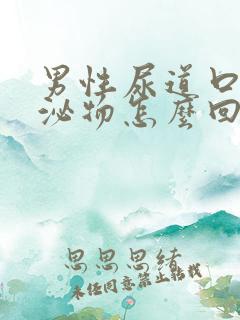 男性尿道口
泌物怎麼回
思思思绪
未经同意禁止转载